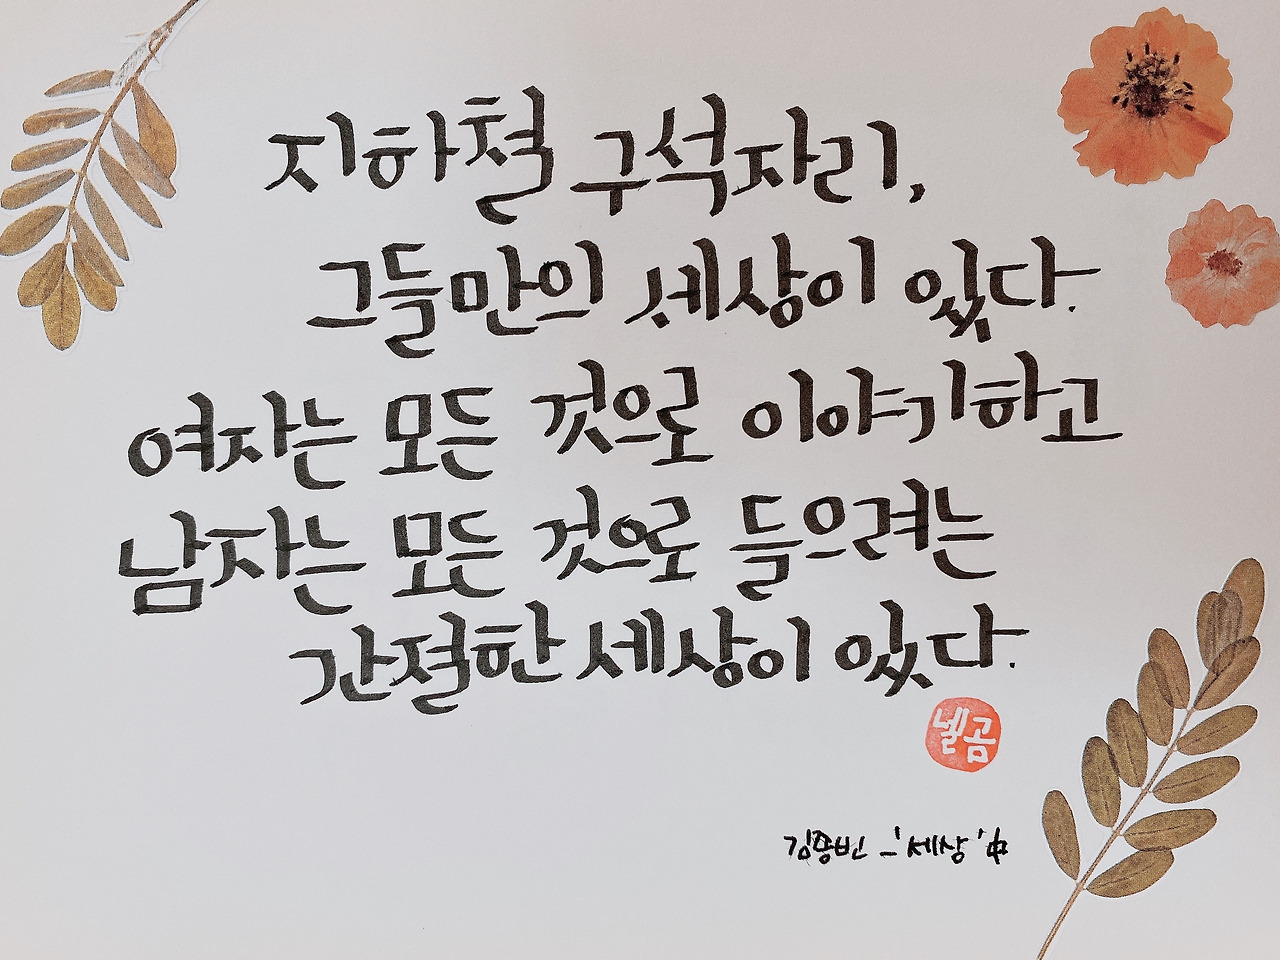 지하철 구석자리,
그들만의 세상이 있다.
여자는 모든 것으로 이야기하고
남자는 모든 것으로 들으려는
간절한 세상이 있다.
넬곰
김용빈 - '세상' 中